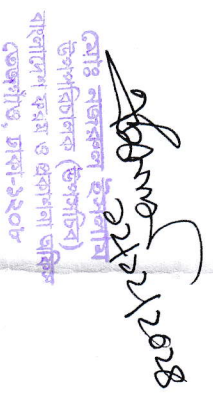 মোঃ নজরুল ইসলাম
উপপরিচালক (উপসচিব)
বাংলাদেশ ফরম ও প্রকাশনা অফিস
তেজগাঁও, ঢাকা-১২০৮